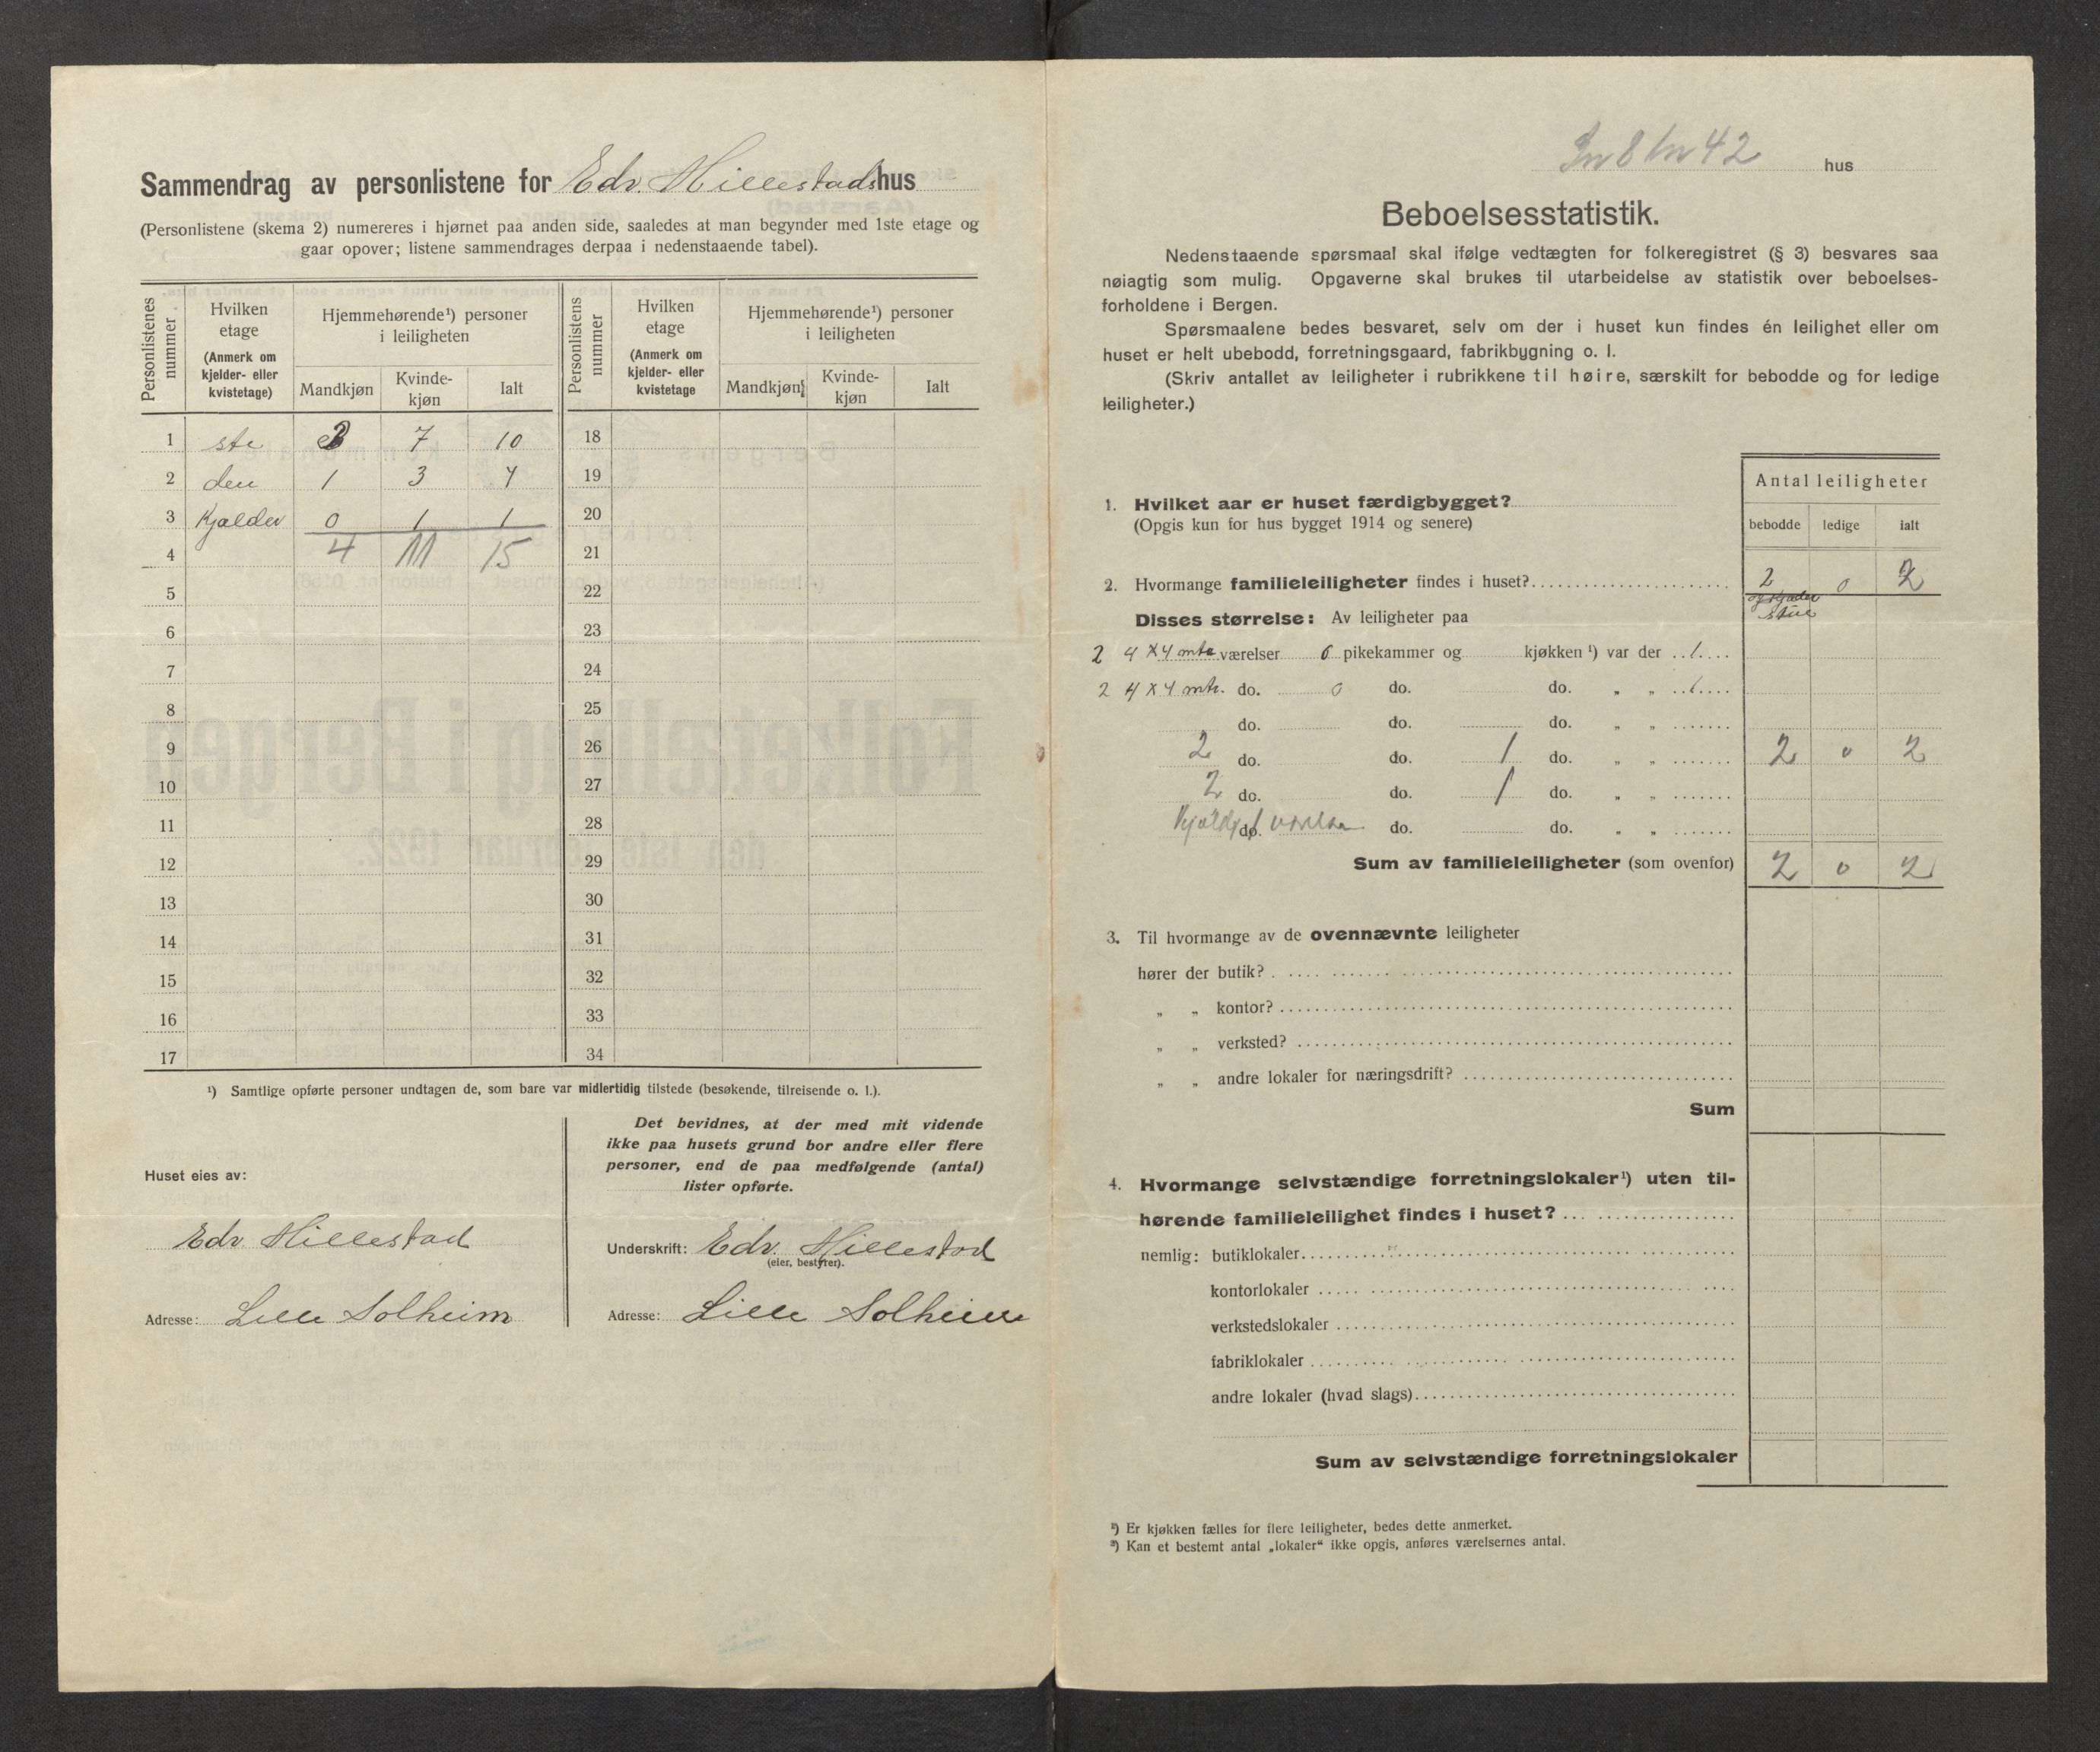 Sammendrag av personlistene for Edv. Hillestads hus
(Personlistene (skema 2) numereres i hjørnet paa anden side, saaledes at man begynder med 1ste etage og
gaar opover; listene sammendrages derpaa i nedenstaaende tabel).
Personlistenes nummer Hvilken etage (Anmerk om kjelder- eller kvistetage) Hjemmehørende¹) personer i leiligheten Mandkjøn Kvindekjøn Ialt
Personlistens nummer Hvilken etage (Anmerk om kjelder- eller kvistetage Hjemmehørende¹) personer i leiligheten Mandkjøn Kvindekjøn Ialt
1 ste 3 7 10 18
2 den 1 3 4 19
3 Kjælder 0 1 1 20
4 4 11 15 21
5 22
6 23
7 24
8 25
9 26
10 27
11 28
12 29
13 30
14 31
15 32
16 33
17 34
¹) Samtlige opførte personer undtagen de, som bare var midlertidig tilstede (besøkende, tilreisende o. l.).
Huset eies av:
Edv. Hillestad
Adresse: Lille Solheim
Det bevidnes, at der med mit vidende
ikke paa husets grund bor andre eller flere
personer, end de paa medfølgende (antal)
lister opførte.
Underskrift: Edv. Hillestad
(eier, bestyrer).
Adresse: Lille Solheim
42 hus
Beboelsesstatistik.
Nedenstaaende spørsmaal skal ifølge vedtægten for folkeregistret (§ 3) besvares saa
nøiagtig som mulig. Opgaverne skal brukes til utarbeidelse av statistik over beboelses-
forholdene i Bergen.
Spørsmaalene bedes besvaret, selv om der i huset kun findes én leilighet eller om
huset er helt ubebodd, forretningsgaard, fabrikbygning o. l.
(Skriv antallet av leiligheter i rubrikkene til høire, særskilt for bebodde og for ledige
leiligheter.)
Antal leiligheter
bebodde ledige ialt
1. Hvilket aar er huset færdigbygget?
(Opgis kun for hus bygget 1914 og senere)
2. Hvormange familieleiligheter findes i huset? 2 0 2
og Kjælder
stue
Disses størrelse: Av leiligheter paa
2 4 x 4 mtr værelser 0 pikekammer og kjøkken ¹) var der 1
2 4 x 4 mtr. do. 0 do. do. „ „ 1
do. do. do. „ „
2 do. do. 1 do. „ „ 2 0 2
2 do. do. 1 do. „ „
Kjælder do. 1 værelse do. do. „ „
Sum av familieleiligheter (som ovenfor) 2 0 2
3. Til hvormange av de ovennævnte leiligheter
hører der butik?
„ „ kontor?
„ „ verksted?
„ „ andre lokaler for næringsdrift?
Sum
4. Hvormange selvstændige forretningslokaler¹) uten til-
hørende familieleilighet findes i huset?
nemlig: butiklokaler
kontorlokaler
verkstedslokaler
fabriklokaler
andre lokaler (hvad slags)
Sum av selvstændige forretningslokaler
¹) Er kjøkken fælles for flere leiligheter, bedes dette anmerket.
²) Kan et bestemt antal „lokaler“ ikke opgis, anføres værelsernes antal.